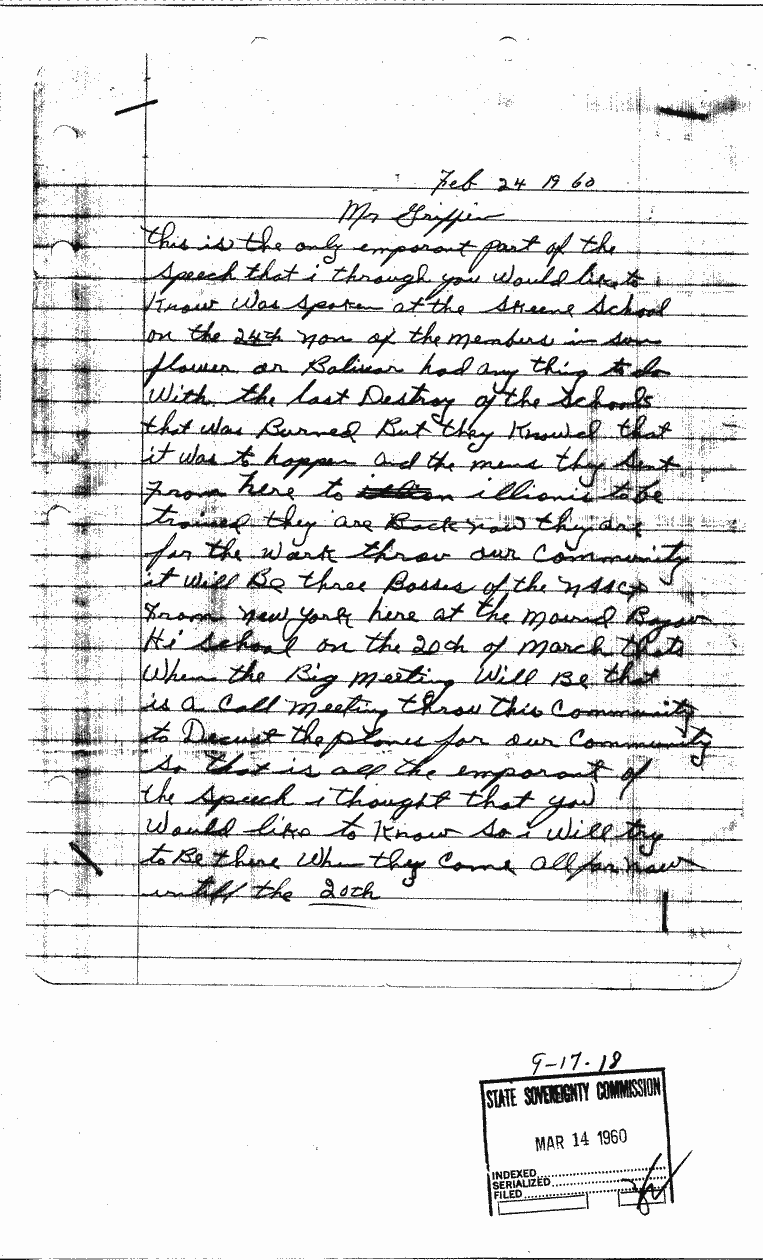 Feb 24 1960
Mr Griffin
this is the only emporant part of the
speech that i through you Would like to
Know Was spoken at the Skeene School
on the 24th non of the members in sun
flower or Balivar had any thing to do
With the last Destroy of the Schools
that Was Burned But they Knowed that
it Was to happen and the mens they sent
From here to illionis to be
trained they are Back now they are
for the Work throw our Community
it Will Be three Bosses of the
From New York here at the Mound Bayou
Hi School on the 20th of March thats
When the Big Meeting Will Be that
is a Call Meeting throu this Community
to Decust the planes for our Community
so that is all the emporant of
the speech i thought that you
Would like to Know So i Will try
to Be there When they Come All for now
untill the 20th
9-17-18
STATE SOVEREIGNTY COMMISSION
MAR 14 1960
INDEXED
SERIALIZED
FILED